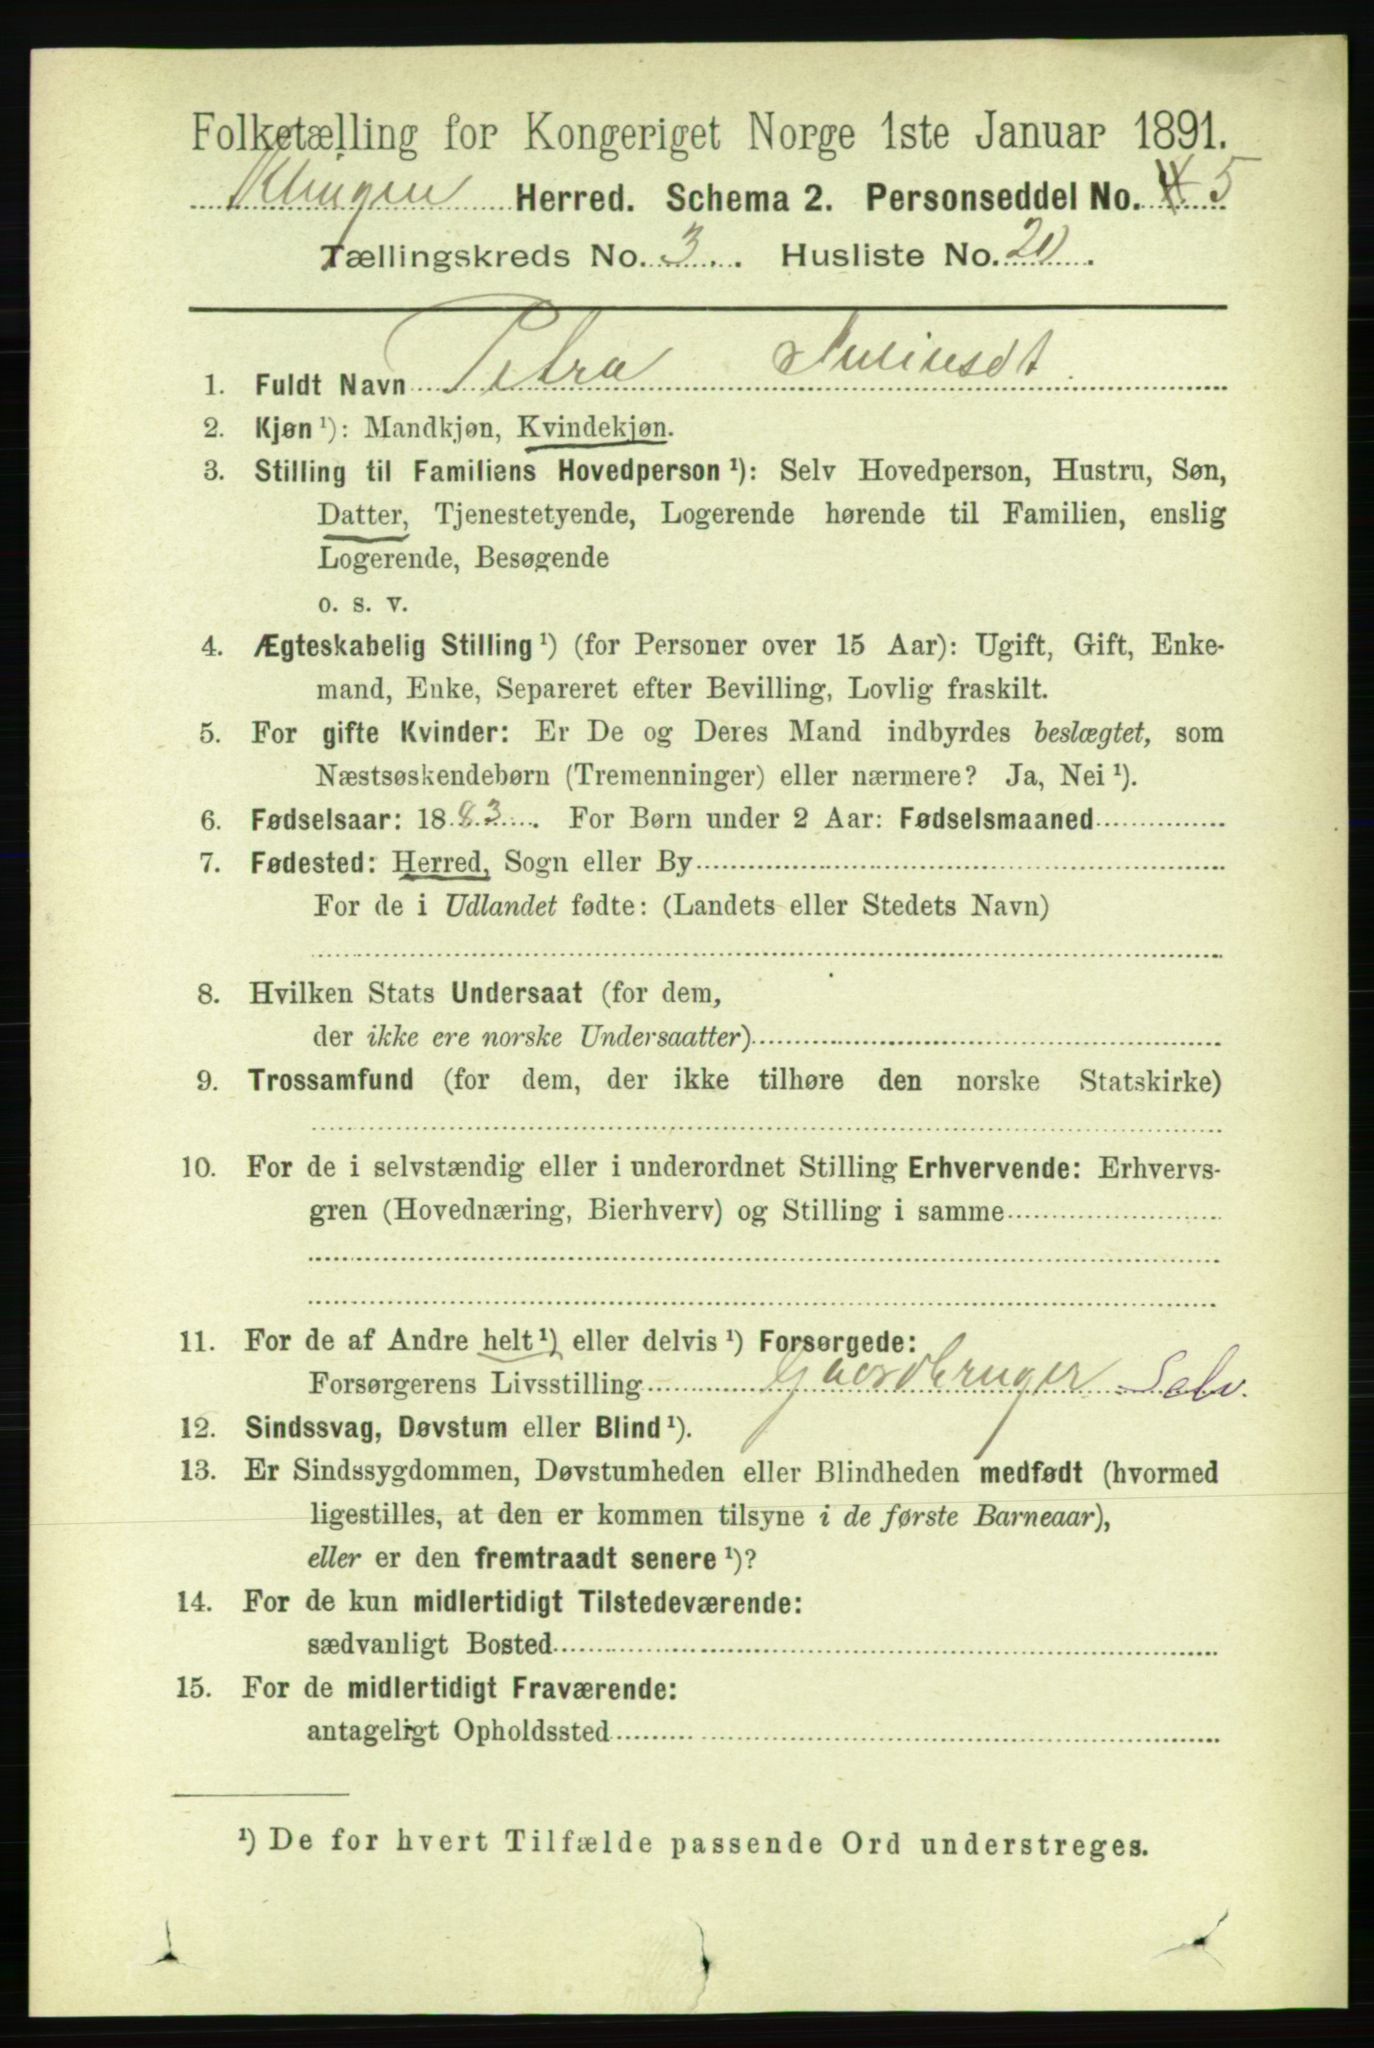 Folketælling for Kongeriget Norge 1ste Januar 1891.
Klingen Herred. Schema 2. Personseddel No. 4 5
Tællingskreds No. 3. Husliste No. 20.
1. Fuldt Navn Petra
2. Kjøn ¹): Mandkjøn, Kvindekjøn.
3. Stilling til Familiens Hovedperson ¹): Selv Hovedperson, Hustru, Søn,
Datter, Tjenestetyende, Logerende hørende til Familien, enslig
Logerende, Besøgende
o. s. v.
4. Ægteskabelig Stilling ¹) (for Personer over 15 Aar): Ugift, Gift, Enke-
mand, Enke, Separeret efter Bevilling, Lovlig fraskilt.
5. For gifte Kvinder: Er De og Deres Mand indbyrdes beslægtet, som
Næstsøskendebørn (Tremenninger) eller nærmere? Ja, Nei ¹).
6. Fødselsaar: 1883. For Børn under 2 Aar: Fødselsmaaned
7. Fødested: Herred, Sogn eller By
For de i Udlandet fødte: (Landets eller Stedets Navn)
8. Hvilken Stats Undersaat (for dem,
der ikke ere norske Undersaatter)
9. Trossamfund (for dem, der ikke tilhøre den norske Statskirke)
10. For de i selvstændig eller i underordnet Stilling Erhvervende: Erhvervs-
gren (Hovednæring, Bierhverv) og Stilling i samme
11. For de af Andre helt ¹) eller delvis ¹) Forsørgede:
Forsørgerens Livsstilling Gaardbruger Selv.
12. Sindssvag, Døvstum eller Blind ¹).
13. Er Sindssygdommen, Døvstumheden eller Blindheden medfødt (hvormed
ligestilles, at den er kommen tilsyne i de første Barneaar),
eller er den fremtraadt senere ¹)?
14. For de kun midlertidigt Tilstedeværende:
sædvanligt Bosted
15. For de midlertidigt Fraværende:
antageligt Opholdssted
¹) De for hvert Tilfælde passende Ord understreges.